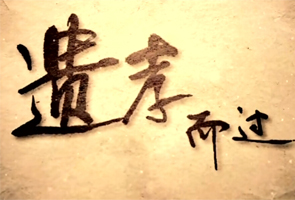 遗孝而过